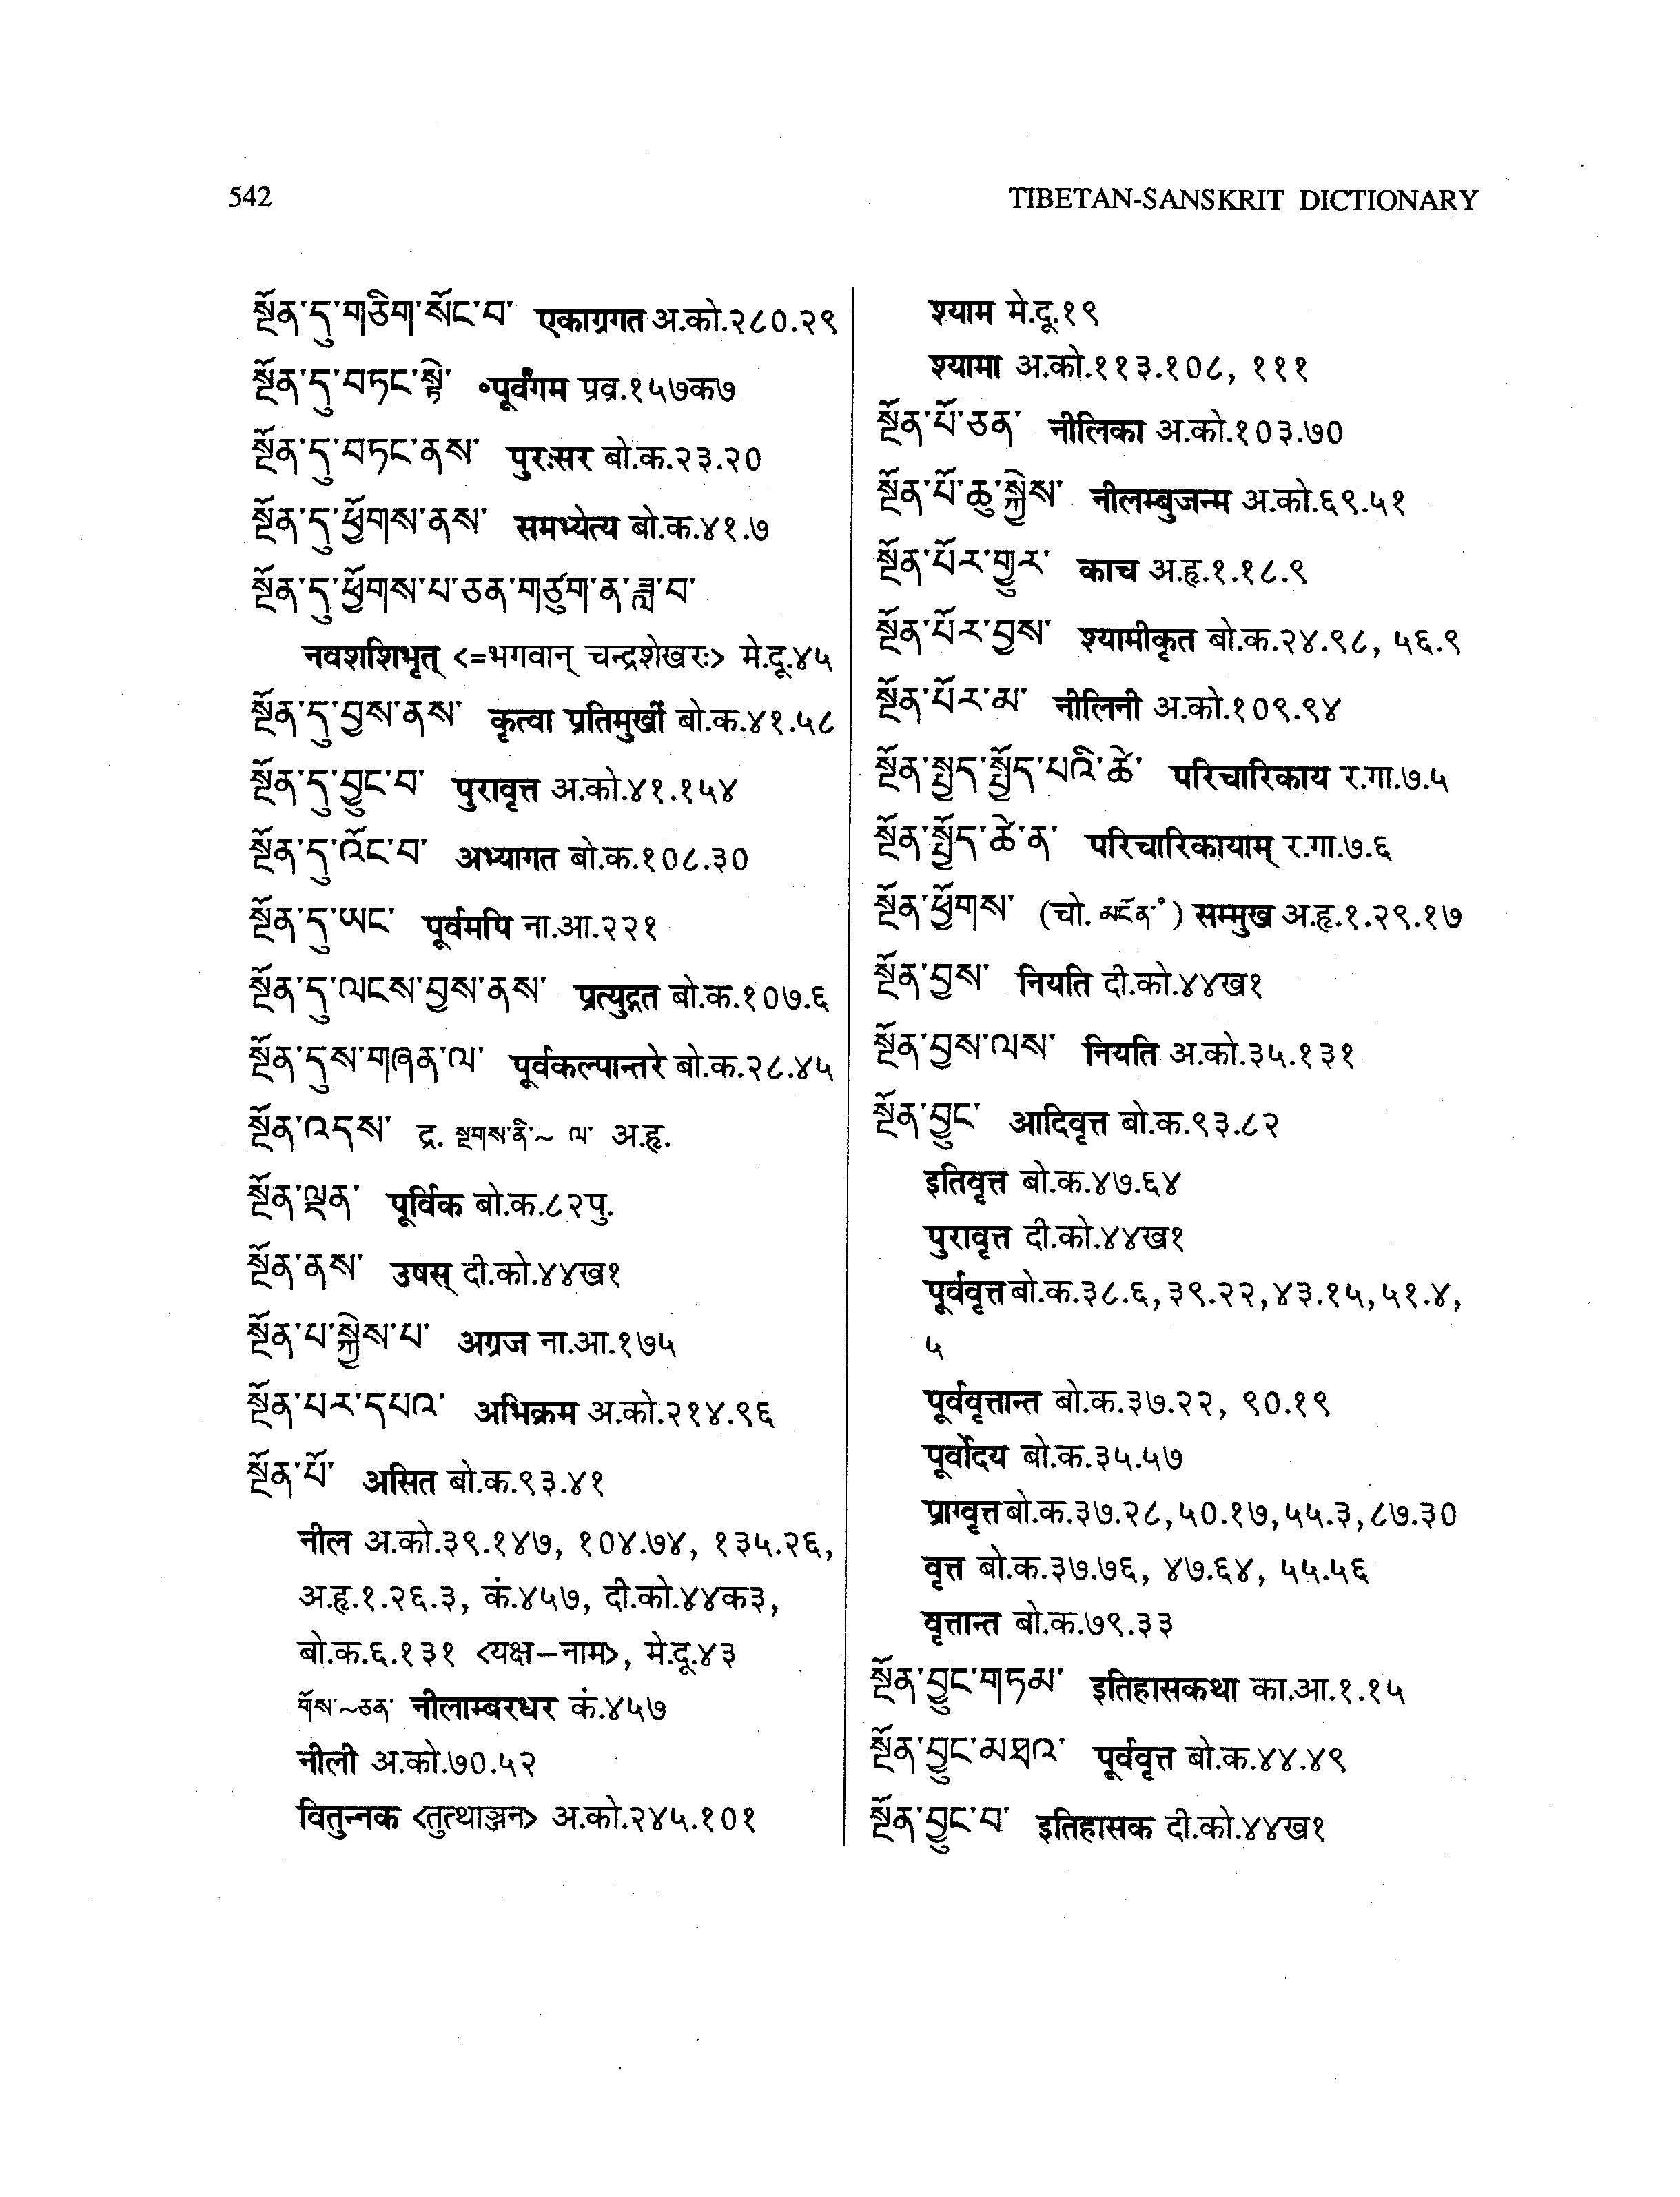 542
TIBETAN-SANSKRIT DICTIONARY
སྔོན་དུ་གཅིག་སོང་བ་ एकाग्रगत अ.को.२८०.२९
སྔོན་དུ་བཏང་སྟེ་ ॰पूर्वंगम प्रव्र.१५७क७
སྔོན་དུ་བཏང་ནས་ पुरःसर बो.क.२३.२०
སྔོན་དུ་ཕྱོགས་ནས་ समभ्येत्य बो.क.४१.७
སྔོན་དུ་ཕྱོགས་པ་ཅན་གཙུག་ན་ཟླ་བ་
नवशशिभृत् <=भगवान् चन्द्रशेखरः> मे.दू.४५
སྔོན་དུ་བྱས་ནས་ कृत्वा प्रतिमुखीं बो.क.४१.५८
སྔོན་དུ་བྱུང་བ་ पुरावृत्त अ.को.४१.१५४
སྔོན་དུ་འོང་བ་ अभ्यागत बो.क.१०८.३०
སྔོན་དུ་ཡང་ पूर्वमपि ना.आ.२२१
སྔོན་དུ་ལངས་བྱས་ནས་ प्रत्युद्गत बो.क.१०७.६
སྔོན་དུས་གཞན་ལ་ पूर्वकल्पान्तरे बो.क.२८.४५
སྔོན་འདས་ द्र. སྔགས་ནི་~ ལ་ अ.हृ.
སྔོན་ལྡན་ पूर्विक बो.क.८२पु.
སྔོན་ནས་ उषस् दी.को.४४ख१
སྔོན་པ་སྐྱེས་པ་ अग्रज ना.आ.१७५
སྔོན་པར་དཔའ་ अभिक्रम अ.को.२१४.९६
སྔོན་པོ་ असित बो.क.९३.४१
नील अ.को.३९.१४७, १०४.७४, १३५.२६,
अ.हृ.१.२६.३, कं.४५७, दी.को.४४क३,
बो.क.६.१३१ <यक्ष–नाम>, मे.दू.४३
གོས་~ཅན་ नीलाम्बरधर कं.४५७
नीली अ.को.७०.५२
वितुन्नक <तुत्थाञ्जन> अ.को.२४५.१०१
श्याम मे.दू.१९
श्यामा अ.को.११३.१०८, १११
སྔོན་པོ་ཅན་ नीलिका अ.को.१०३.७०
སྔོན་པོ་ཆུ་སྐྱེས་ नीलम्बुजन्म अ.को.६९.५१
སྔོན་པོར་གྱུར་ काच अ.हृ.१.१८.९
སྔོན་པོར་བྱས་ श्यामीकृत बो.क.२४.९८, ५६.९
སྔོན་པོར་མ་ नीलिनी अ.को.१०९.९४
སྔོན་སྤྱད་སྤྱོད་པའི་ཚེ་ परिचारिकाय र.गा.७.५
སྔོན་སྤྱོད་ཚེ་ན་ परिचारिकायाम् र.गा.७.६
སྔོན་ཕྱོགས་ (चो. མངོན་॰) सम्मुख अ.हृ.१.२९.१७
སྔོན་བྱས་ नियति दी.को.४४ख१
སྔོན་བྱས་ལས་ नियति अ.को.३५.१३१
སྔོན་བྱུང་ आदिवृत्त बो.क.९३.८२
इतिवृत्त बो.क.४७.६४
पुरावृत्त दी.को.४४ख१
पूर्ववृत्त बो.क.३८.६, ३९.२२, ४३.१५, ५१.४,
५
पूर्ववृत्तान्त बो.क.३७.२२, ९०.१९
पूर्वोदय बो.क.३५.५७
प्राग्वृत्त बो.क.३७.२८, ५०.१७, ५५.३, ८७.३०
वृत्त बो.क.३७.७६, ४७.६४, ५५.५६
वृत्तान्त बो.क.७९.३३
སྔོན་བྱུང་གཏམ་ इतिहासकथा का.आ.१.१५
སྔོན་བྱུང་མཐའ་ पूर्ववृत्त बो.क.४४.४९
སྔོན་བྱུང་བ་ इतिहासक दी.को.४४ख१